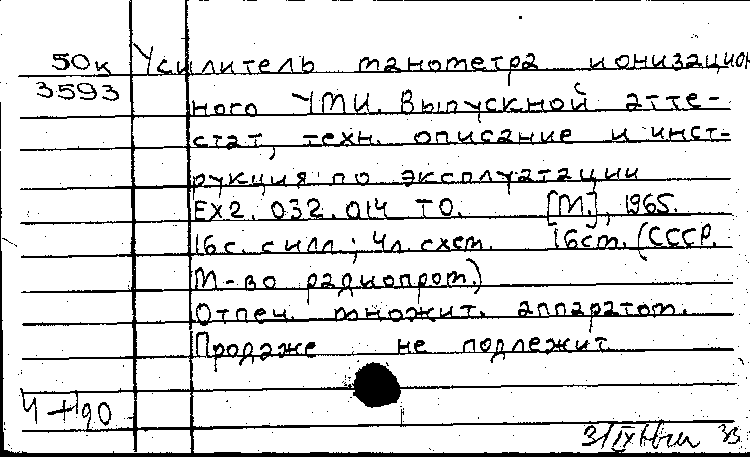 50к Усилитель манометра ионизацион
3593
ного УМИ. Выпускной атте-
стат, техн. описание и инст-
рукция по эксплуатации
ЕХ2.032.014 ТО. [М.], 1965.
16 с. с илл.; 4 л. схем. 16 см. (СССР.
М-во радиопром.)
Отпеч. множит. аппаратом.
Продаже не подлежит